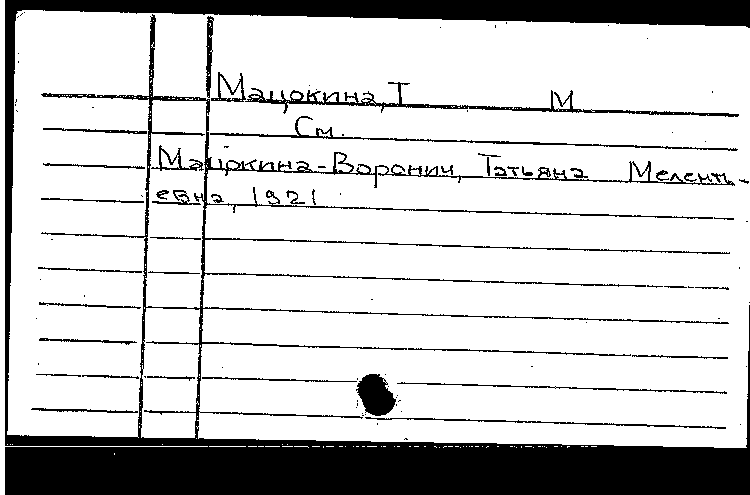 Мацокина, Т М
См.
Мацокина-Воронич, Татьяна Меленть-
евна, 1921